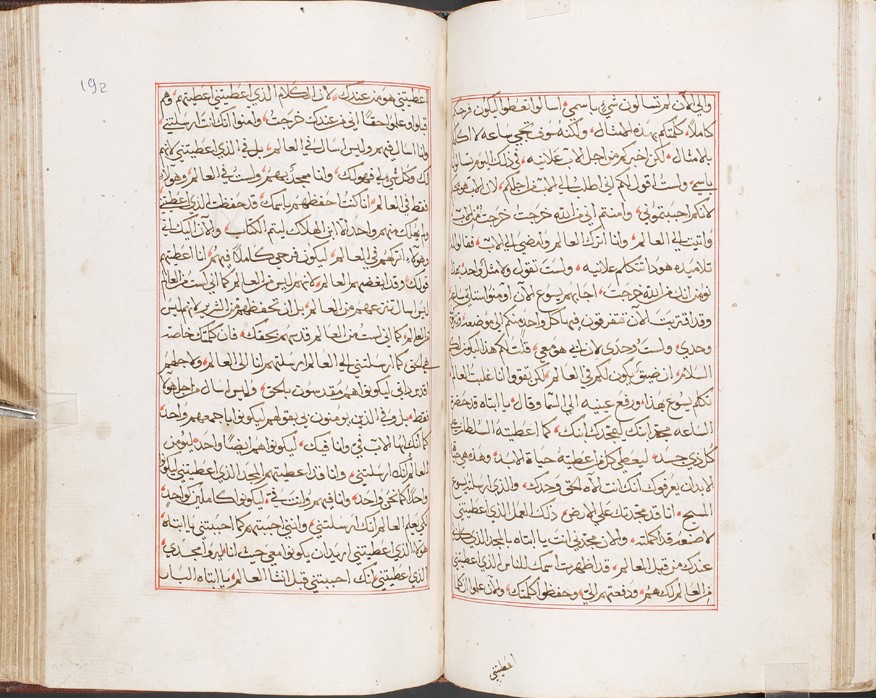 والى الان لم تسالون شي باسمي اسالوا تعطوا ليكون فرحكم
كاملا كلمتكم بهذه الامثال ولكنه سوف تجي ساعه لا اكلمكم
بالامثال لكن اخبركم من اجل الاب علانيه في ذلك اليوم تسالون
باسمي ولست اقول لكم اني اطلب الى الاب من اجلكم لان الاب هو يحبكم
لانكم احببتموني وامنتم اني من الله خرجت خرجت من الاب
واتيت الى العالم وانا اترك العالم وامضي الى الاب فقالوا له
تلاميذه هوذا تتكلم علانيه ولست تقول ولا مثل واحد بهذا
نومن انك من الله خرجت اجابهم يسوع الان اومنوا ستاتي ساعه
وقد اقتربت الان تتفرقون فيها كل واحد منكم الى موضعه وتتركوني
وحدي ولست وحدي لان ابي هو معي قلت لكم هذا ليكون لكم
السلام ان ضيق يكون لكم في العالم لكن تقووا انا غلبت العالم
تكلم يسوع بهذا ورفع عينيه الى السما وقال يا ابتاه قد حضرت
الساعه مجد ابنك ليمجدك ابنك كما اعطيته السلطان على
كل ذي جسد ليعطي كل من اعطيته حياة الابد وهذه هي حياة
الابد ان يعرفوك انك انت الاه الحق وحدك والذي ارسلته يسوع
المسيح انا قد مجدتك على الارض ذلك العمل الذي اعطيتني
لاصنعه قد اكملته والان مجدني انت يا ابتاه بالمجد الذي كان لي
عندك من قبل العالم قد اظهرت اسمك للناس الذي اعطيتني
من العالم لك هم ودفعتهم الي وحفظوا كلمتك والان علموا ان كلما
اعطيتني
192
اعطيتني هو من عندك لان الكلام الذي اعطيتني اعطيتهم وهم
قبلوا وعلموا حقا اني من عندك خرجت وامنوا انك انت ارسلتني
وانا اسال فيهم وليس اسال في العالم بل في الذي اعطيتني لانهم
لك وكل شي لي فهو لك وانا ممجد بهم ولست في العالم وهولاء
فقط في العالم انا كنت احفظهم باسمك قد حفظت الذي اعطيتني
ولم يهلك منهم واحد الا ابن الهلاك ليتم الكتاب والان اليك اتي
وهولاء اتركهم في العالم ليكون فرحي كاملا فيهم انا اعطيتهم
قولك وقد ابغضهم العالم لانهم ليس من العالم كما اني لست من العالم
ليس اسال تنزعهم من العالم بل ان تحفظهم من الشرير لانهم ليس
من العالم كما اني لست من العالم قدسهم بحقك فان كلمتك خاصة
هي الحق كما ارسلتني الى العالم ارسلتهم انا الى العالم ولاجلهم
اقدس ذاتي ليكونوا هم مقدسون بالحق وليس اسال من اجل هولاء
فقط بل وفي الذين يومنون بي بقولهم ليكونوا باجمعهم واحد
كما انك ايها الاب في وانا فيك ليكونوا هم ايضا واحد ليومن
العالم انك ارسلتني وانا قد اعطيتهم المجد الذي اعطيتني ليكونوا
واحدا كما نحن واحد وانا فيهم وانت في ليكونوا كاملين كواحد
لكي يعلم العالم انك ارسلتني وانني احببتهم كما احببتني يا ابتاه
هولاء الذي اعطيتني اريد ان يكونوا معي حيث انا ليروا مجدي
الذي اعطيتني انك احببتني قبل انشا العالم يا ابتاه البار